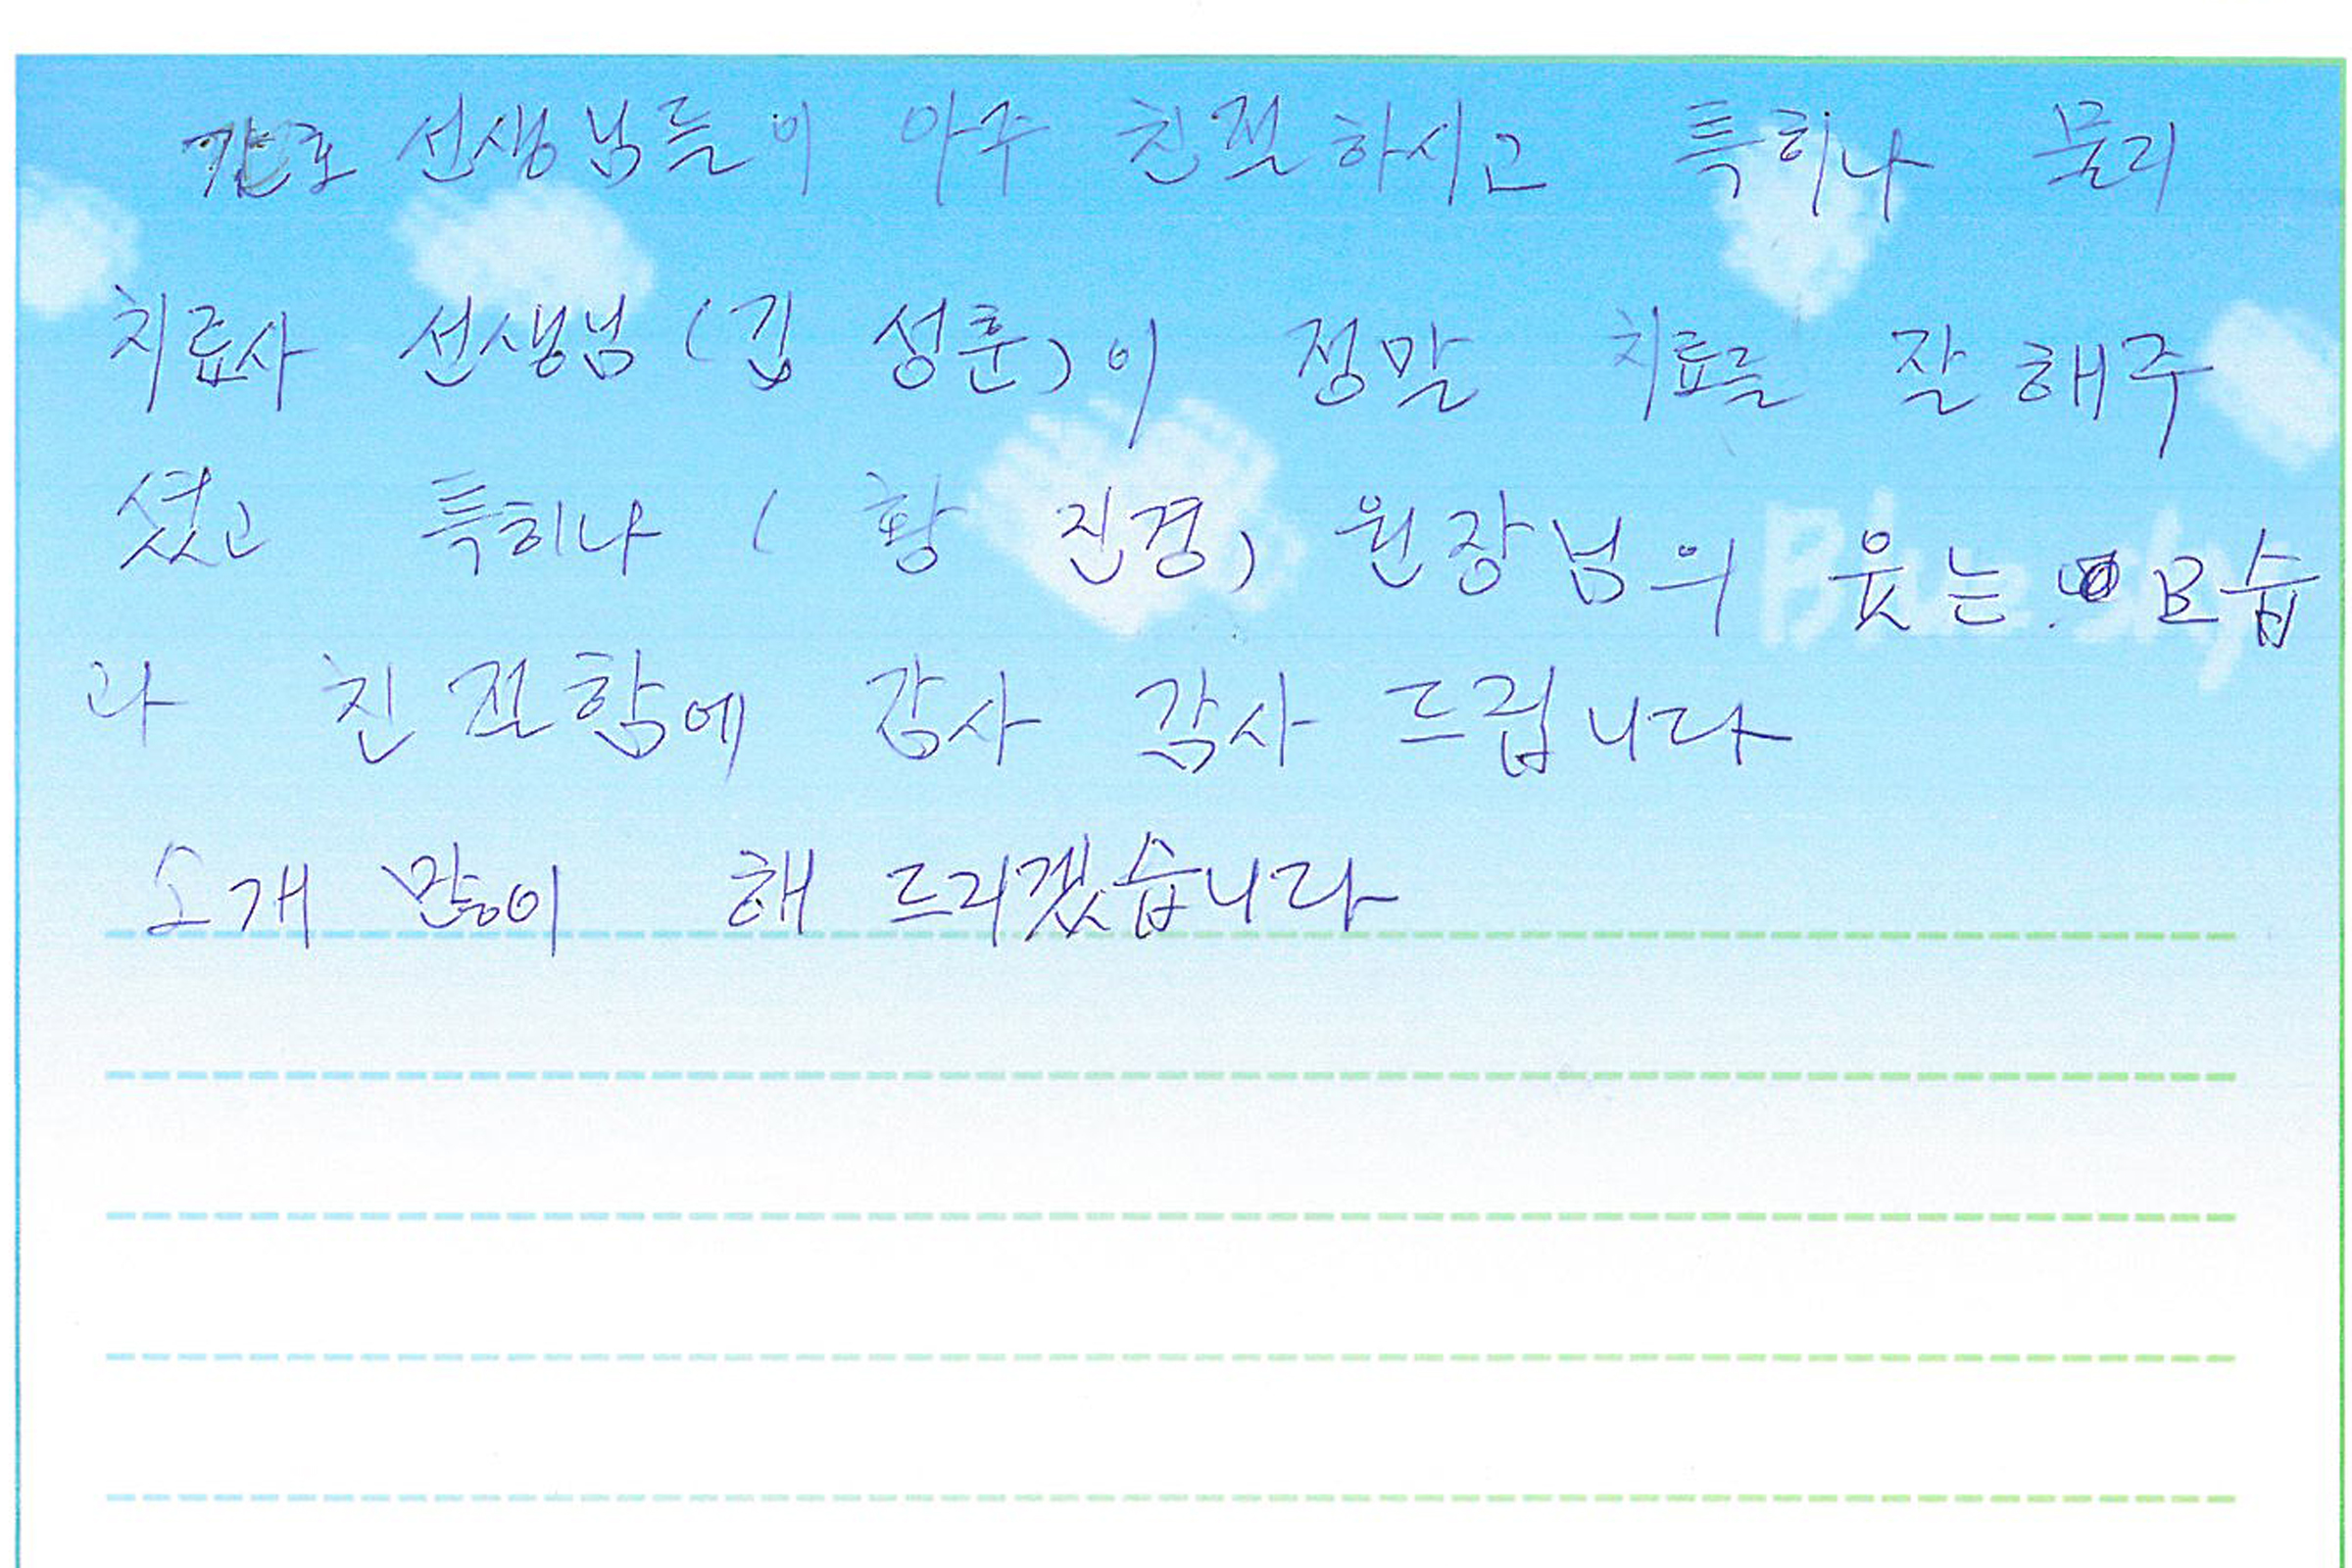 간호 선생님들이 아주 친절하시고 특히나 물리
치료사 선생님 (김 성훈)이 정말 치료를 잘 해주
셨고 특히나 ( 황 진경) 원장님의 웃는 모습
과 친절함에 감사 감사 드립니다
소개 많이 해 드리겠습니다
Blue sky